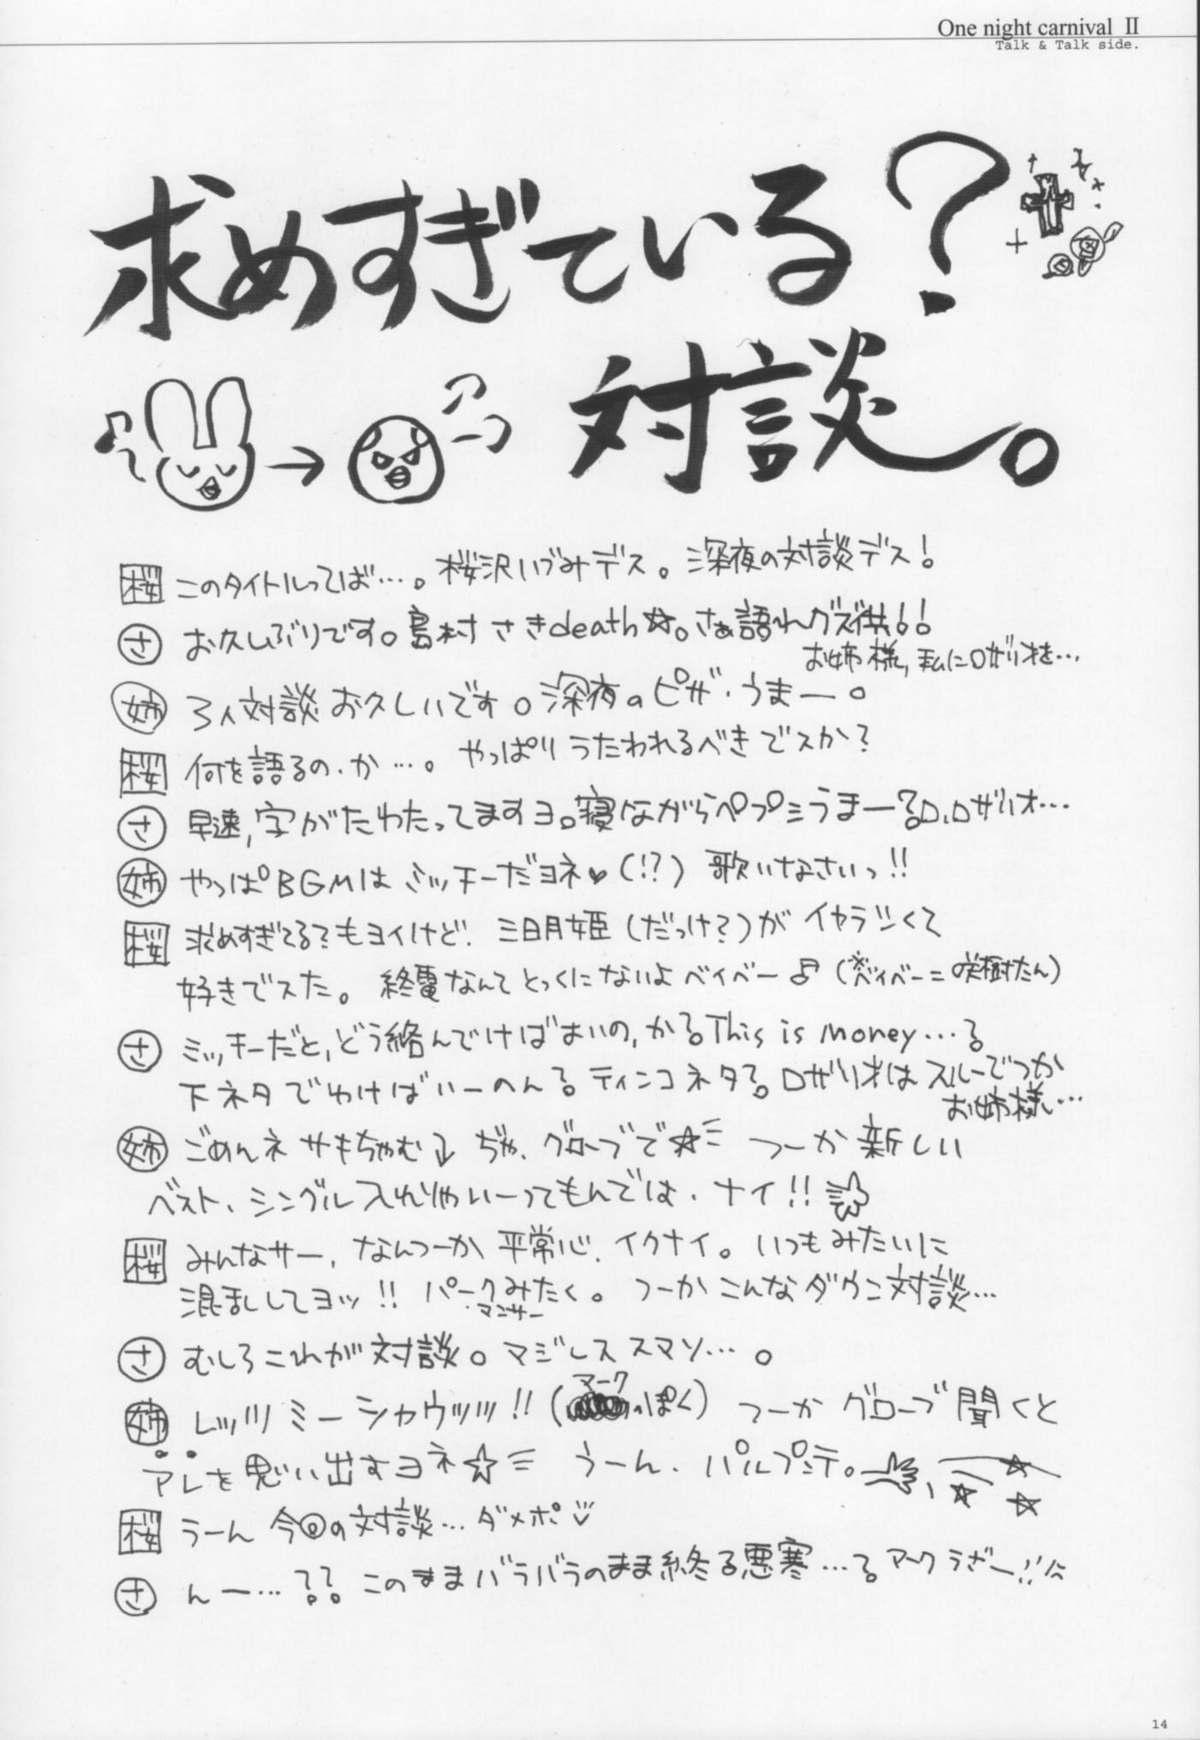 One night carnival II
Talk & Talk side.
求めすぎている?
対談。
桜 このタイトルってば…。桜沢いづみデス。深夜の対談デス!
さ お久しぶりです。島村さきdeath☆。さぁ語れグズ共!!
お姉様,私にロザリオを…
姉 3人対談お久しいです。深夜のピザ・うまー。
桜 何を語るの、か…。やっぱりうたわれるべきでスか?
さ 早速,字がたわたってますヨ。寝ながらペプシうまー?ロ,ロザリオ…
姉 やっぱBGMはミッキーだヨネ♥(!?) 歌いなさいっ!!
桜 求めすぎてる?もヨイけど、三日月姫(だっけ?)がイヤラシくて
好きでスた。終電なんてとっくにないよベイベー♪(※ベイベー=咲樹たん)
さ ミッキーだと,どう絡んでけばよいの,か?This is money…?
下ネタでいけばいーのん?ティンコネタ?ロザリオはスルーでつか
お姉様…
姉 ごめんネ サキちゃむ↓ ぢゃ、グローブで☆ つーか新しい
ベスト、シングル入れりゃいーってもんでは、ナイ!!
桜 みんなサー、なんつーか平常心、イクナイ。いつもみたいに
混乱してヨッ!! パークマンサーみたく。つーかこんなダウン対談…
さ むしろこれが対談。マジレススマソ…。
姉 レッツミーシャウッッ!!(マークっぽく) つーかグローブ聞くと
アレを思い出すヨネ☆ うーん、パルプンテ。
桜 うーん 今回の対談…ダメポ
さ んー…?? このままバラバラのまま終る悪寒…?マークうざー!!
14